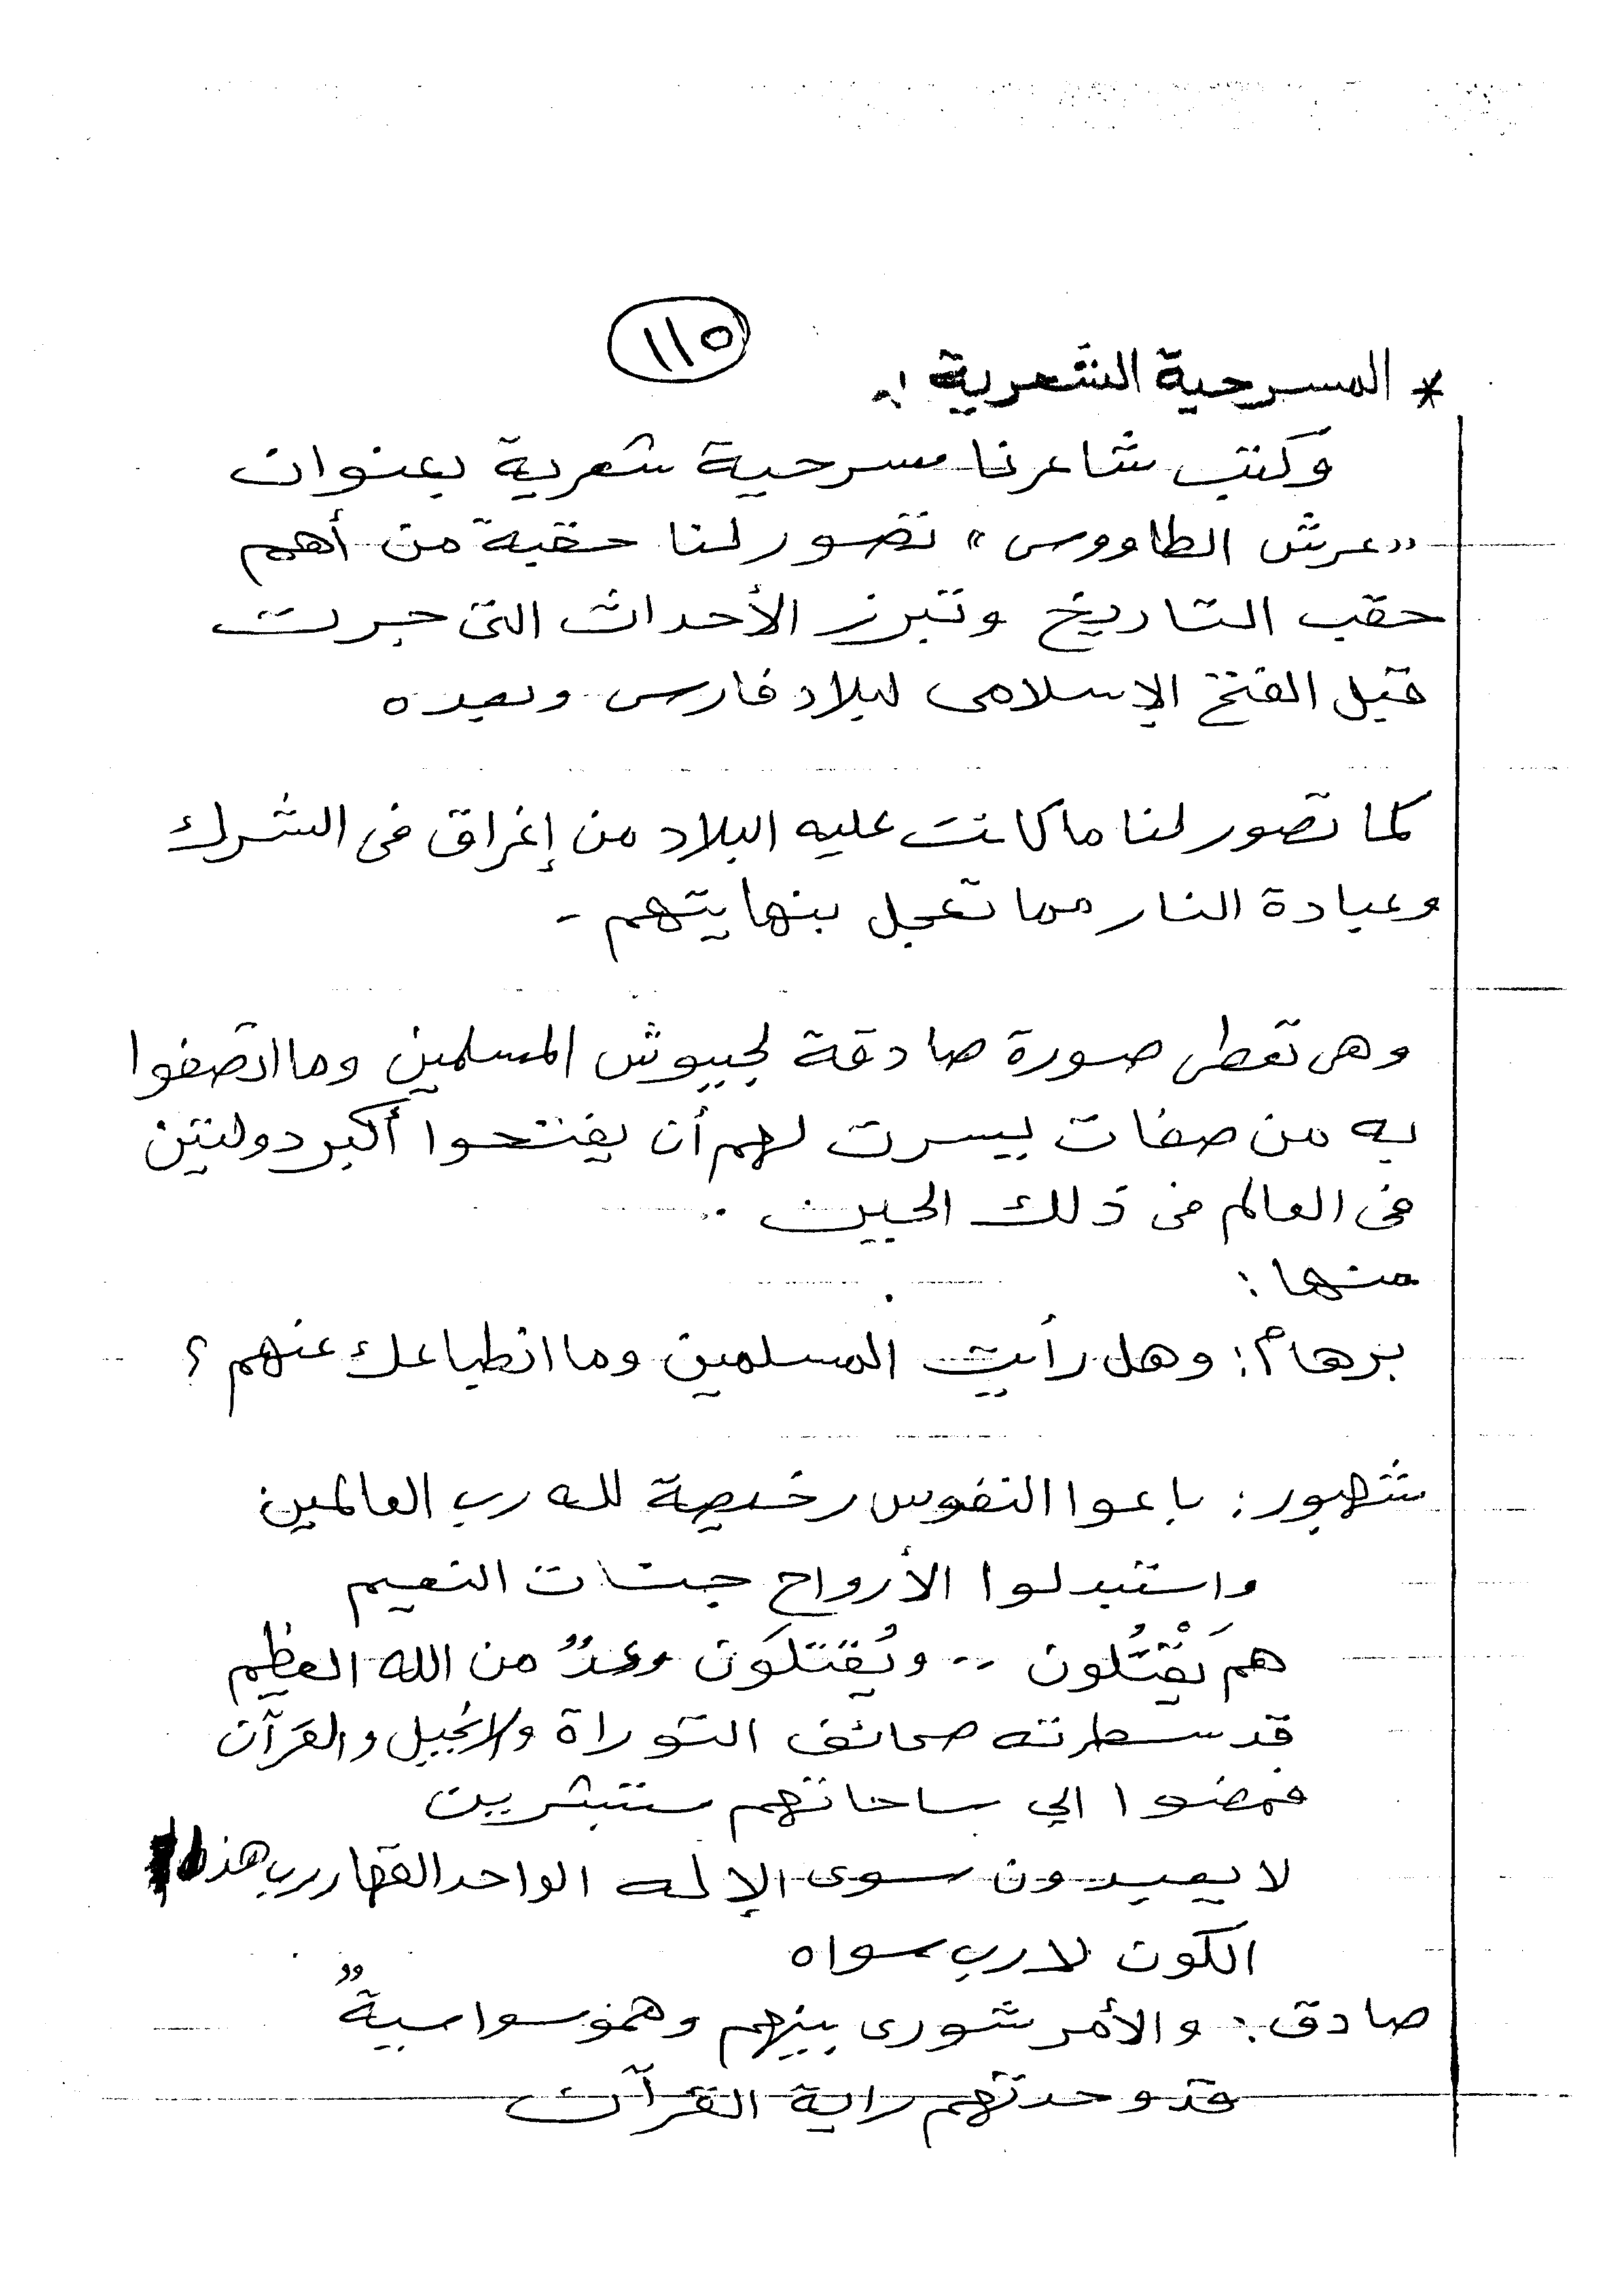 ١١٥
* المسرحية الشعرية :
وكتب شاعرنا مسرحية شعرية بعنوان
«عرش الطاووس» تصور لنا حقبة من أهم
حقب التاريخ وتبرز الأحداث التى جرت
قبل الفتح الإسلامى لبلاد فارس وبعده
كما تصور لنا ما كانت عليه البلاد من إغراق فى الشرك
وعبادة النار مما تعجل بنهايتهم -
وهى تعطى صورة صادقة لجيوش المسلمين وما اتصفوا
به من صفات يسرت لهم أن يفتحوا أكبر دولتين
فى العالم فى ذلك الحين .
منها :
برهام : وهل رأيت المسلمين وما انطباعك عنهم ؟
شهبور : باعوا النفوس رخيصة لله رب العالمين
واستبدلوا الأرواح جنات النعيم
همَ يَقْتُلون .. ويُقتَلَون وعدٌ من الله العظيم
قد سطرته صحائف التوراة والإنجيل والقرآن
فمضوا الي ساحاتهم مستبشرين
لا يعبدون سوى الإله الواحد القهار رب هذا
الكون لا رب سواه
صادق : والأمر شورى بينهم وهمو سواسيةٌ
قد وحدتهم راية القرآن